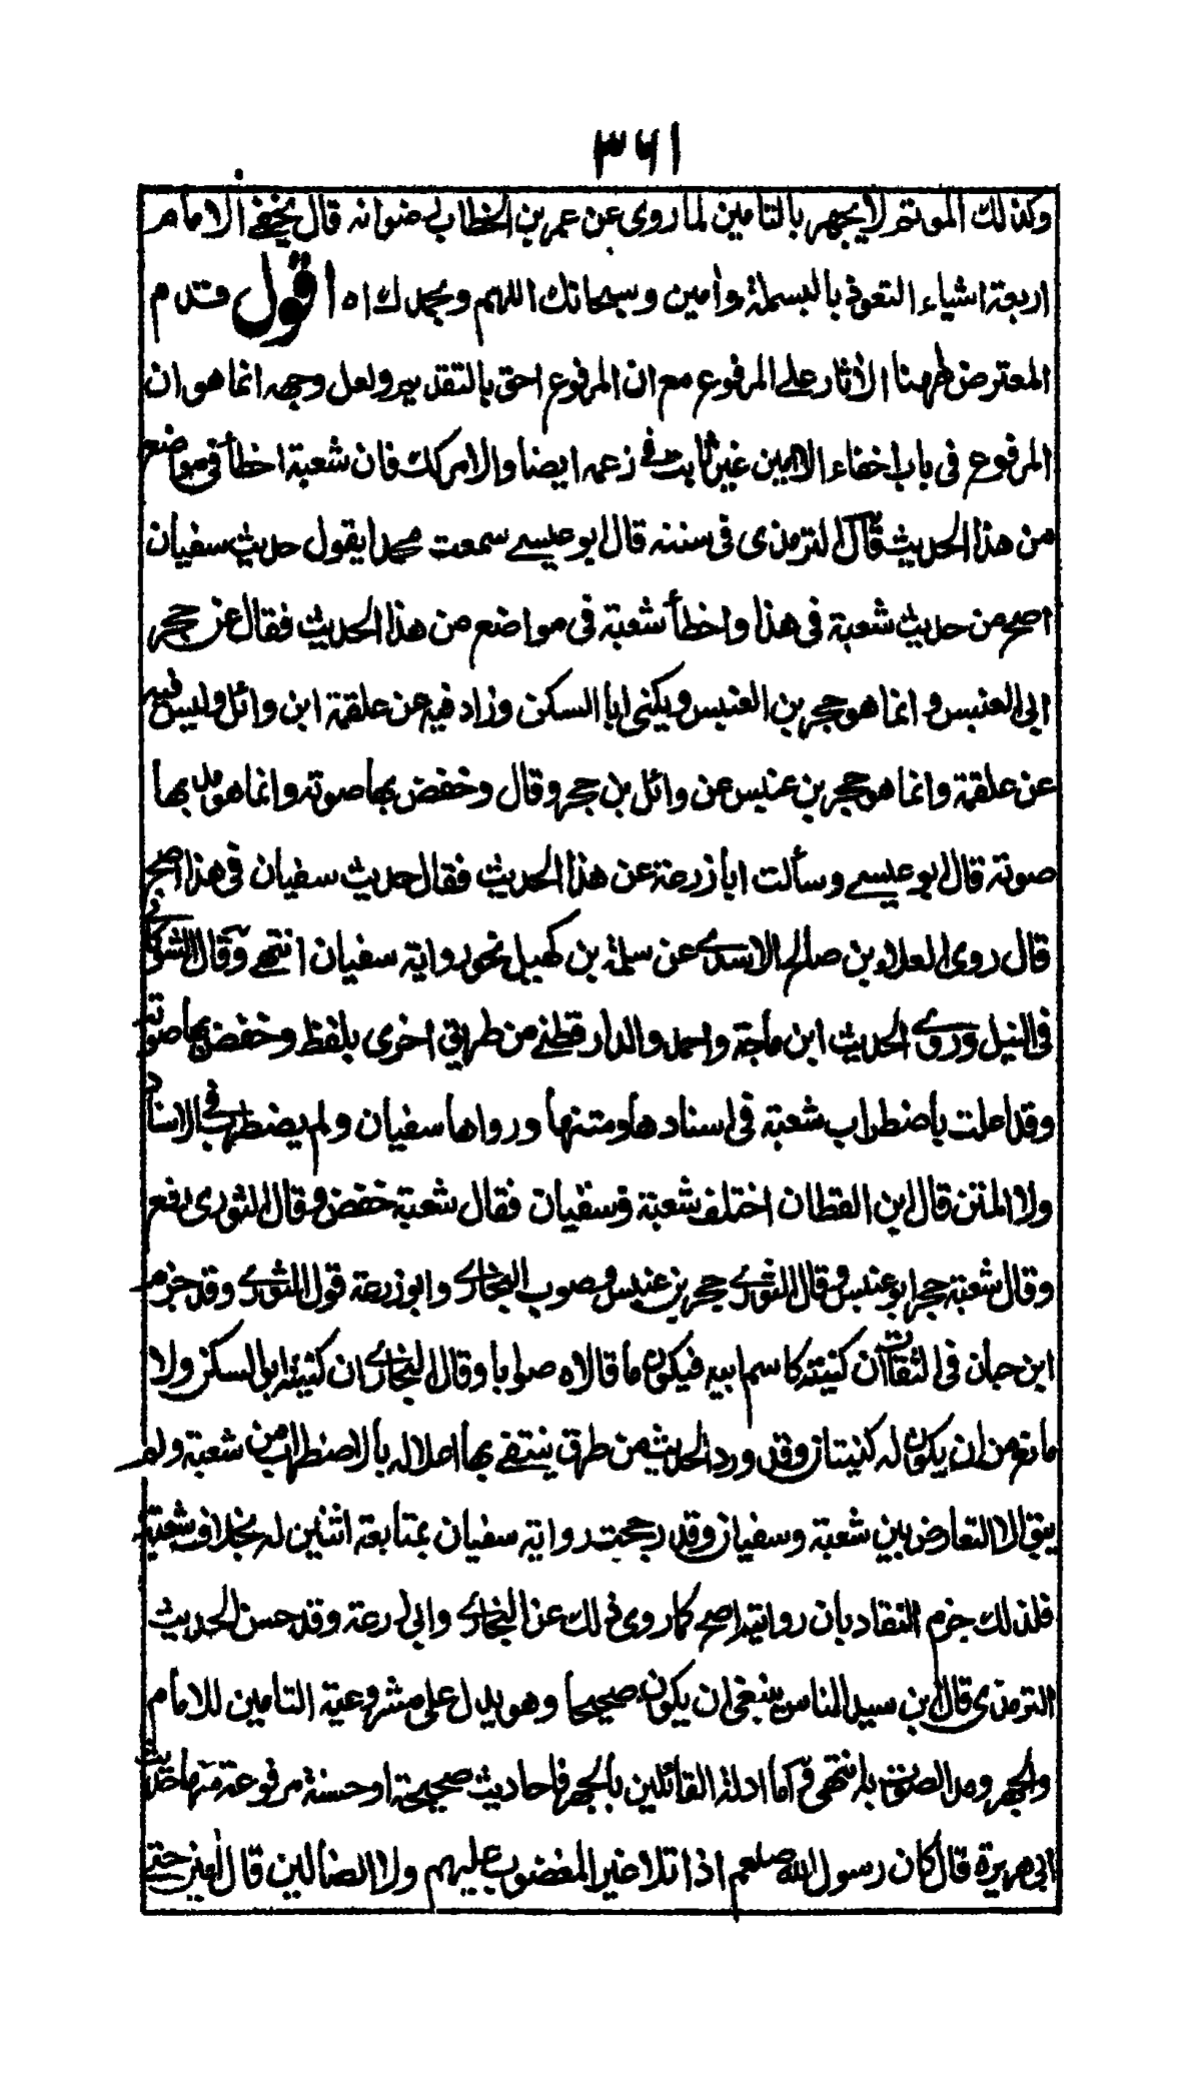 ٣٦١
وكذلك الموتم لا يجهر بالتامين لما روى عن عمر بن الخطاب رضي انه قال يخفے الامام
اربعة اشياء التعوذ بالبسملة وآمين و سبحانك اللهم وبحمدك اه اقول قدم
المعترض ههنا الآثار علے المرفوع مع ان المرفوع احق بالتقديم ولعل وجهه انما هو ان
المرفوع فى باب اخفاء الآمين غير ثابت فے زعمه ايضا والامر كك فان شعبة اخطأ فى مواضع
من هذا الحديث قال الترمذى فى سننه قال ابو عيسے سمعت محمدا يقول حديث سفيان
اصح من حديث شعبة فى هذا واخطأ شعبة فى مواضع من هذا الحديث فقال عن حجر
ابى العنبس و انما هو حجر بن العنبس ويكنى ابا السكن وزاد فيه عن علقمة ابن وائل وليس فيه
عن علقمة وانما هو حجر بن عنبس عن وائل بن حجر وقال وخفض بها صوته وانما هو مد بها
صوته قال ابو عيسے وسألت ابا زرعة عن هذا الحديث فقال حديث سفيان فى هذا اصح
قال روى العلاء بن صالح الاسدے عن سلمة بن كهيل نحو رواية سفيان انتهے وقال الشوكانے
فى النيل وروے الحديث ابن ماجة واحمد والدارقطنے من طريق اخرى بلفظ وخفض بها صوته
وقد اعلت باضطراب شعبة فى اسنادها ومتنها ورواها سفيان ولم يضطرب فے الاسناد
ولا المتن قال ابن القطان اختلف شعبة وسفيان فقال شعبة خفض وقال الثورى رفع
وقال شعبة حجر ابو عنبس وقال الثورے حجر بن عنبس وصوب البخارے وابو زرعة قول الثورے وقد جزم
ابن حبان فى الثقات ان كنيته كاسم ابيه فيكون ما قالاه صوابا وقال البخارے ان كنيته ابو السكن ولا
مانع من ان يكون له كنيتان وقد ورد الحديث من طرق ينتفے بها اعلاله بالاضطراب من شعبة ولم
يبق الا التعارض بين شعبة وسفيان وقد رجحت رواية سفيان بمتابعة اثنين له بخلاف شعبة
فلذلك جزم النقاد بان روايته اصح كما روى ذلك عن البخارے وابى زرعة وقد حسن الحديث
الترمذى قال ابن سيد الناس ينبغى ان يكون صحيحا وهو يدل على مشروعية التامين للامام
والجهر ومد الصوت به انتهى واما ادلة القائلين بالجهر فاحاديث صحيحة او حسنة مرفوعة منها حديث
ابى هريرة قال كان رسول الله صلعم اذا تلا غير المغضوب عليهم ولا الضالين قال آمين حتے